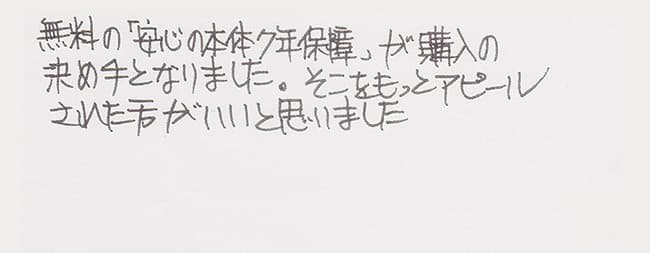 無料の「安心の本体7年保障」が購入の
決め手となりました。そこをもっとアピール
された方がいいと思いました